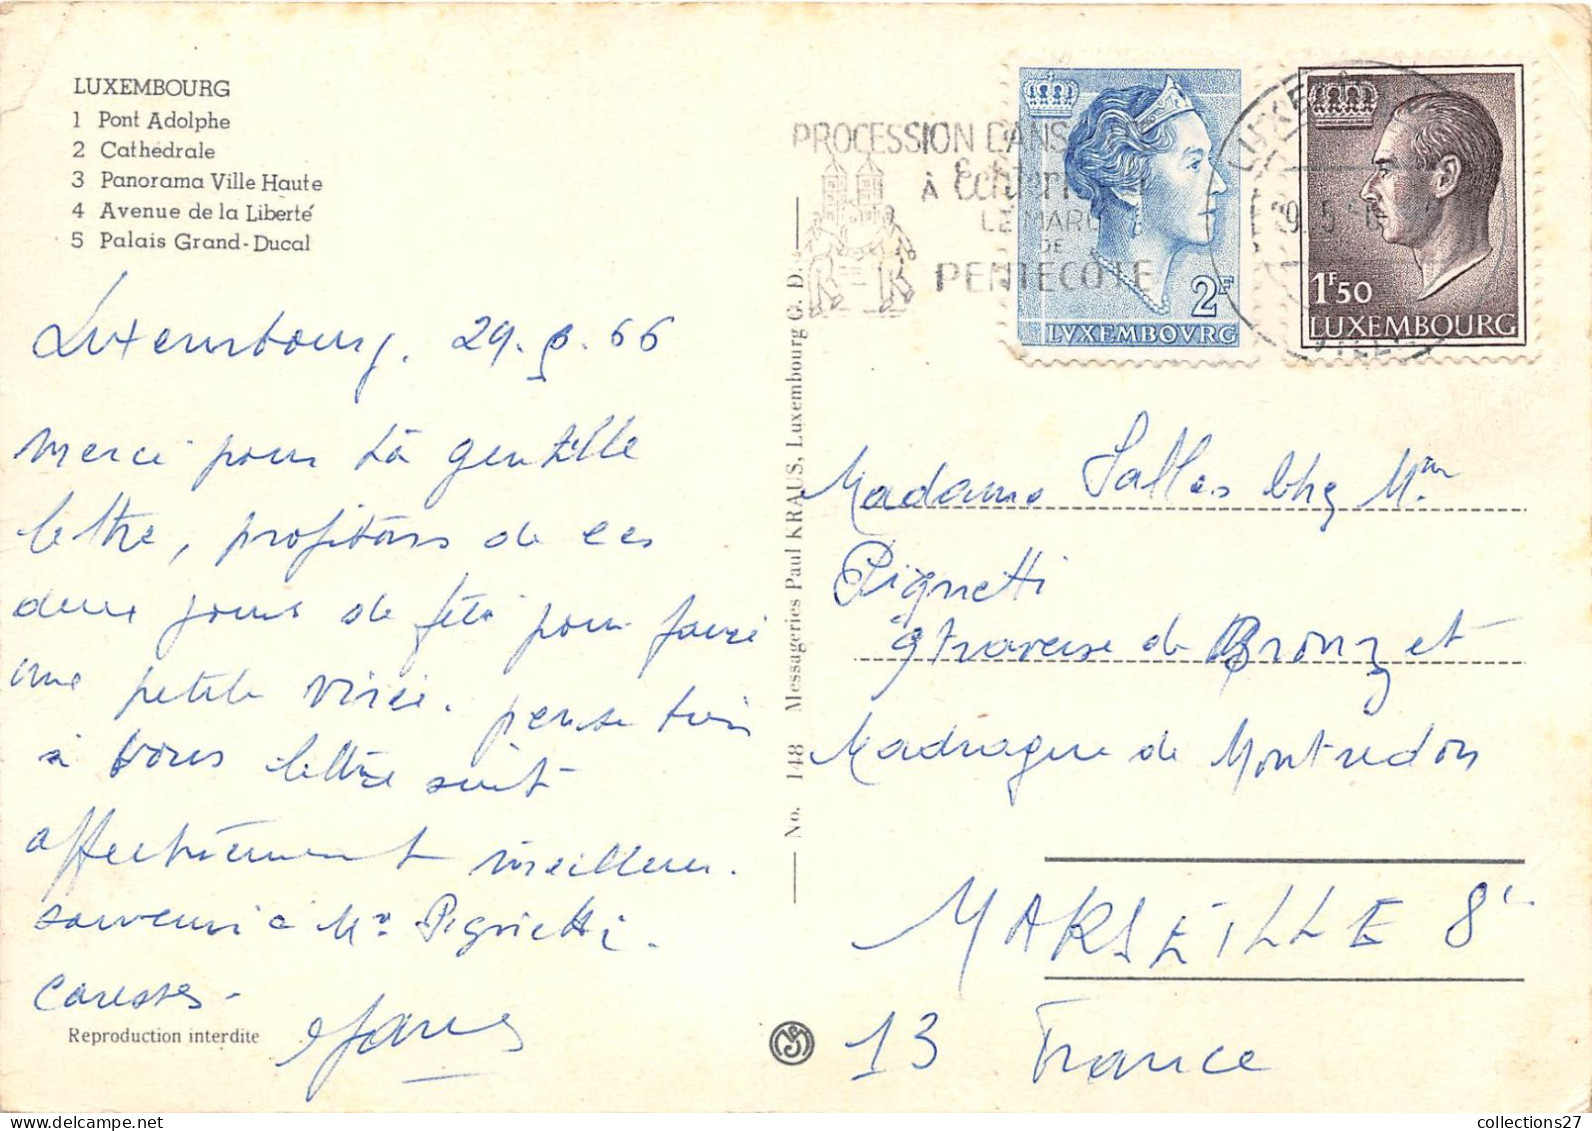 LUXEMBOURG
1 Pont Adolphe
2 Cathédrale
3 Panorama Ville Haute
4 Avenue de la Liberté
5 Palais Grand-Ducal
Luxembourg. 29.5.66
Merci pour ta gentille
lettre, profitons de ces
deux jours de fête pour faire
une petite virée. pense bien
à vous lettre suit
affectueusement meilleur.
souvenir à Mr Pignetti.
caresses.
Reproduction interdite
No. 148 Messageries Paul KRAUS, Luxembourg G. D.
PROCESSION DANSANTE
À Echternach
LE MARDI
DE
PENTECOTE
2F
LVXEMBOVRG
1F50
LUXEMBOURG
LUXEMBOURG
VILLE
Madame Salles chez Mme
Pignetti
9 traverse de Bronzet
Madrague de Montredon
MARSEILLE 8e
13 France
collections27